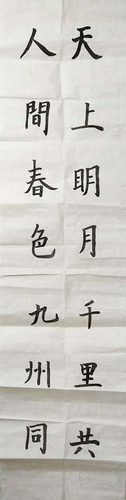 天上明月千里共
人間春色九州同